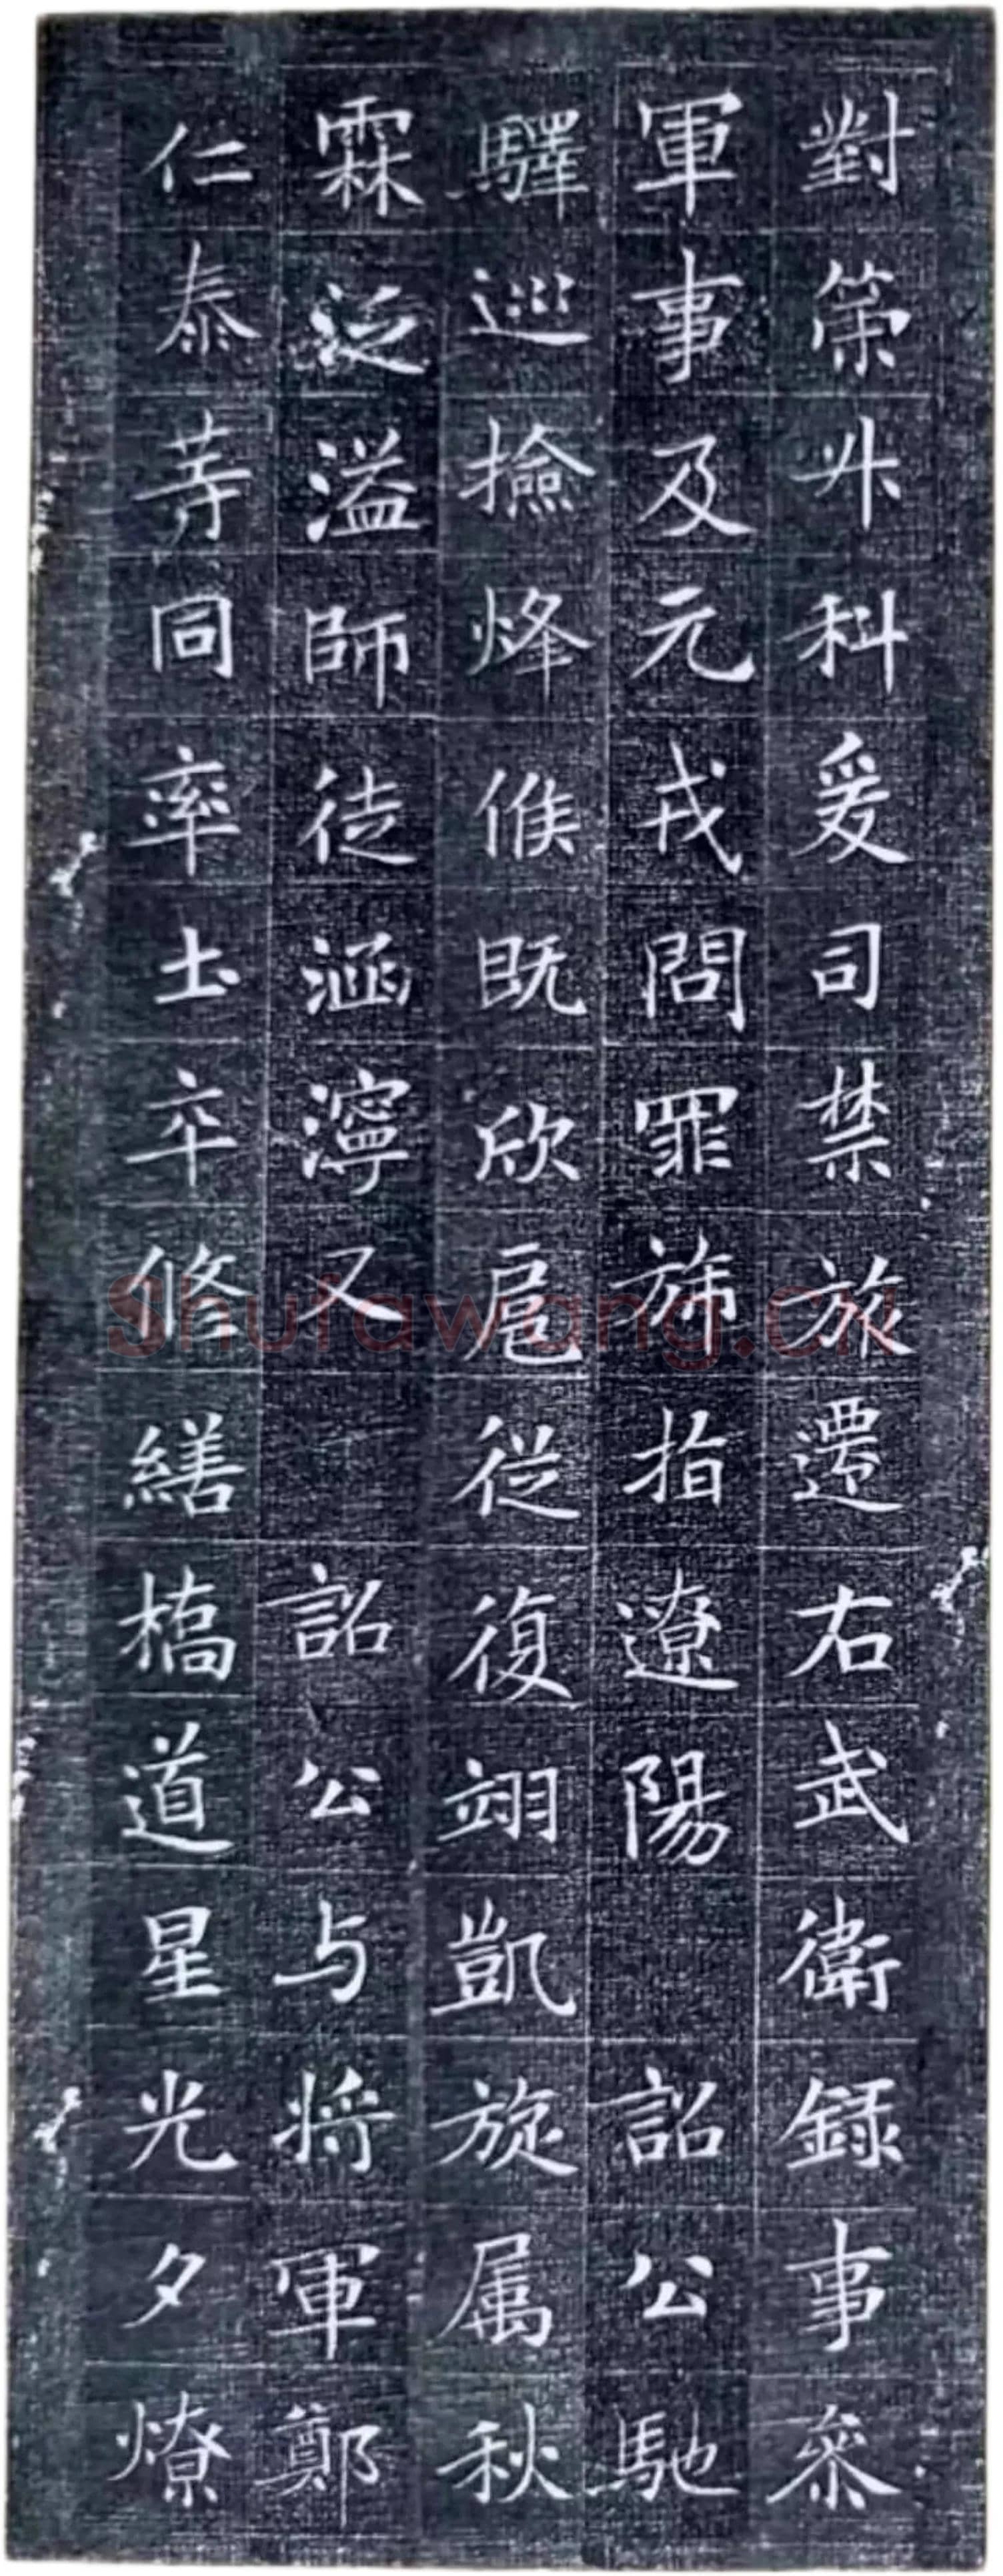 對策升科爰司禁旅還右武衛錄事叅
軍事及元戎問罪旆指遼陽 詔公馳
驛巡撿烽候既欣扈從復翊凱旋属秋
霖泛溢師徒涵濘又 詔公与將軍鄭
仁泰等同率士卒修繕橋道星光夕燎
Shufawang.cn